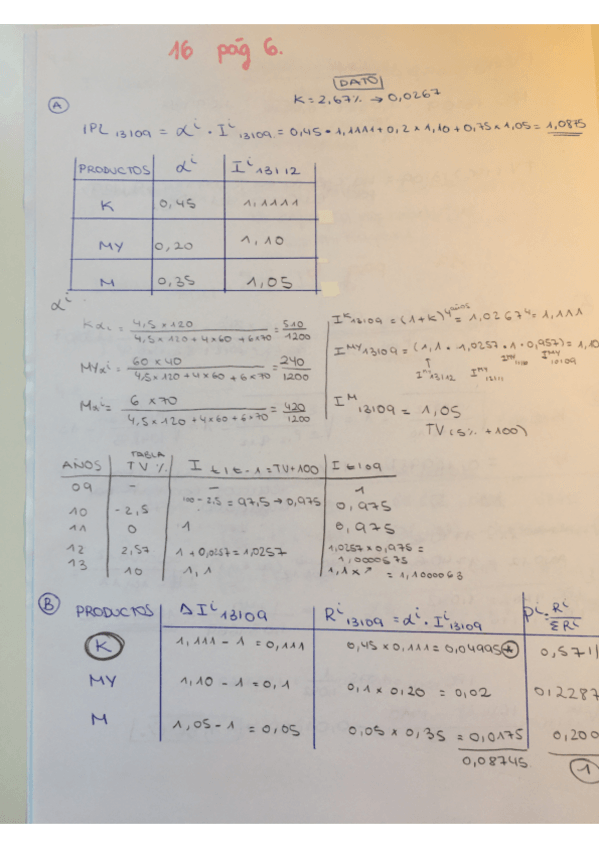 16 pág 6.
DATO
K = 2,67% → 0,0267
A
IPL 13109 = αⁱ · Iⁱ 13109 = 0,45 · 1,1111 + 0,2 × 1,10 + 0,75 × 1,05 = 1,0875
PRODUCTOS αⁱ Iⁱ 13112
K 0,45 1,1111
MY 0,20 1,10
M 0,35 1,05
αⁱ
Kαi = 4,5 × 120 / 4,5 × 120 + 4 × 60 + 6 × 70 = 510 / 1200
Iᴷ 13109 = (1+K)⁴ años = 1,0267⁴ = 1,111
MYαi = 60 × 40 / 4,5 × 120 + 4 × 60 + 6 × 70 = 240 / 1200
Iᴹʸ 13109 = (1,1 · 1,0257 · 1 · 0,957) = 1,10
Mαi = 6 × 70 / 4,5 × 120 + 4 × 60 + 6 × 70 = 420 / 1200
Iᴹ 13109 = 1,05
TV (5% + 100)
AÑOS TABLA TV % I t|t-1 = TV + 100 I t109
09 - - 1
10 -2,5 100 - 2,5 = 97,5 → 0,975 0,975
11 0 1 0,975
12 2,57 1 + 0,0257 = 1,0257 1,0257 × 0,975 = 1,0000575
13 10 1,1 1,1 × ↗ = 1,1000063
B
PRODUCTOS ΔIⁱ 13109 Rⁱ 13109 = αⁱ · Iⁱ 13109 Pⁱ = Rⁱ / ΣRⁱ
K 1,111 - 1 = 0,111 0,45 × 0,111 = 0,04995 0,571
MY 1,10 - 1 = 0,1 0,1 × 0,20 = 0,02 0,2287
M 1,05 - 1 = 0,05 0,05 × 0,35 = 0,0175 0,200
0,08745 1